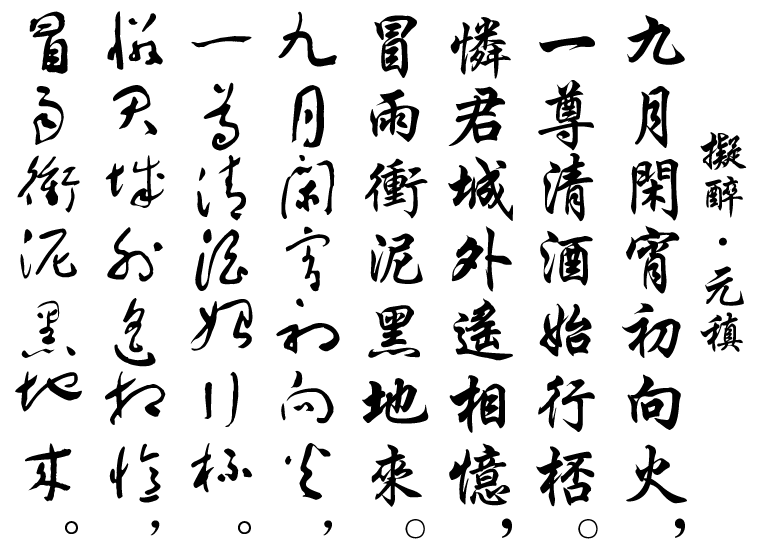 擬醉·元稹
九月閑宵初向火，
一尊清酒始行桮。
憐君城外遙相憶，
冒雨衝泥黑地來。
九月閑宵初向火，
一尊清酒始行桮。
憐君城外遙相憶，
冒雨衝泥黑地來。